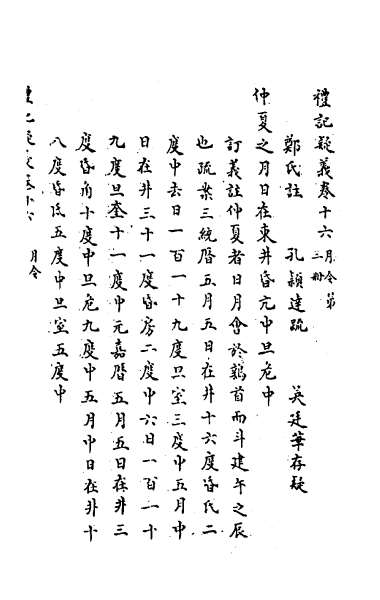 禮記疑義卷十六月令第三冊
鄭氏註　孔穎達疏　吳廷華存疑
仲夏之月日在東井昏亢中旦危中
訂義註仲夏者日月會於鶉首而斗建午之辰
也疏案三統曆五月五日在井十六度昏氐二
度中去日一百一十九度旦室三度中五月中
日在井三十一度昏房二度中六日一百一十
九度旦奎十一度中元嘉曆五月五日在井三
度昏角十度中旦危九度中五月中日在井十
八度昏氐五度中旦室五度中
禮記疑義卷十六　月令